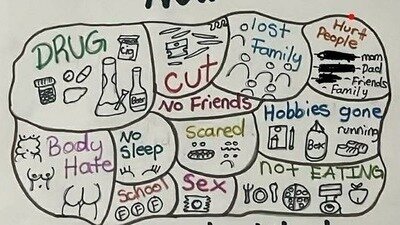 DRUG
Cig
Beer
CUT
lost
Family
Hurt
People
mom
- Dad
- Friends
- Family
No Friends
Hobbies gone
running
Box
Body
Hate
No
Sleep
Scared
School
F F F
Sex
not EATING